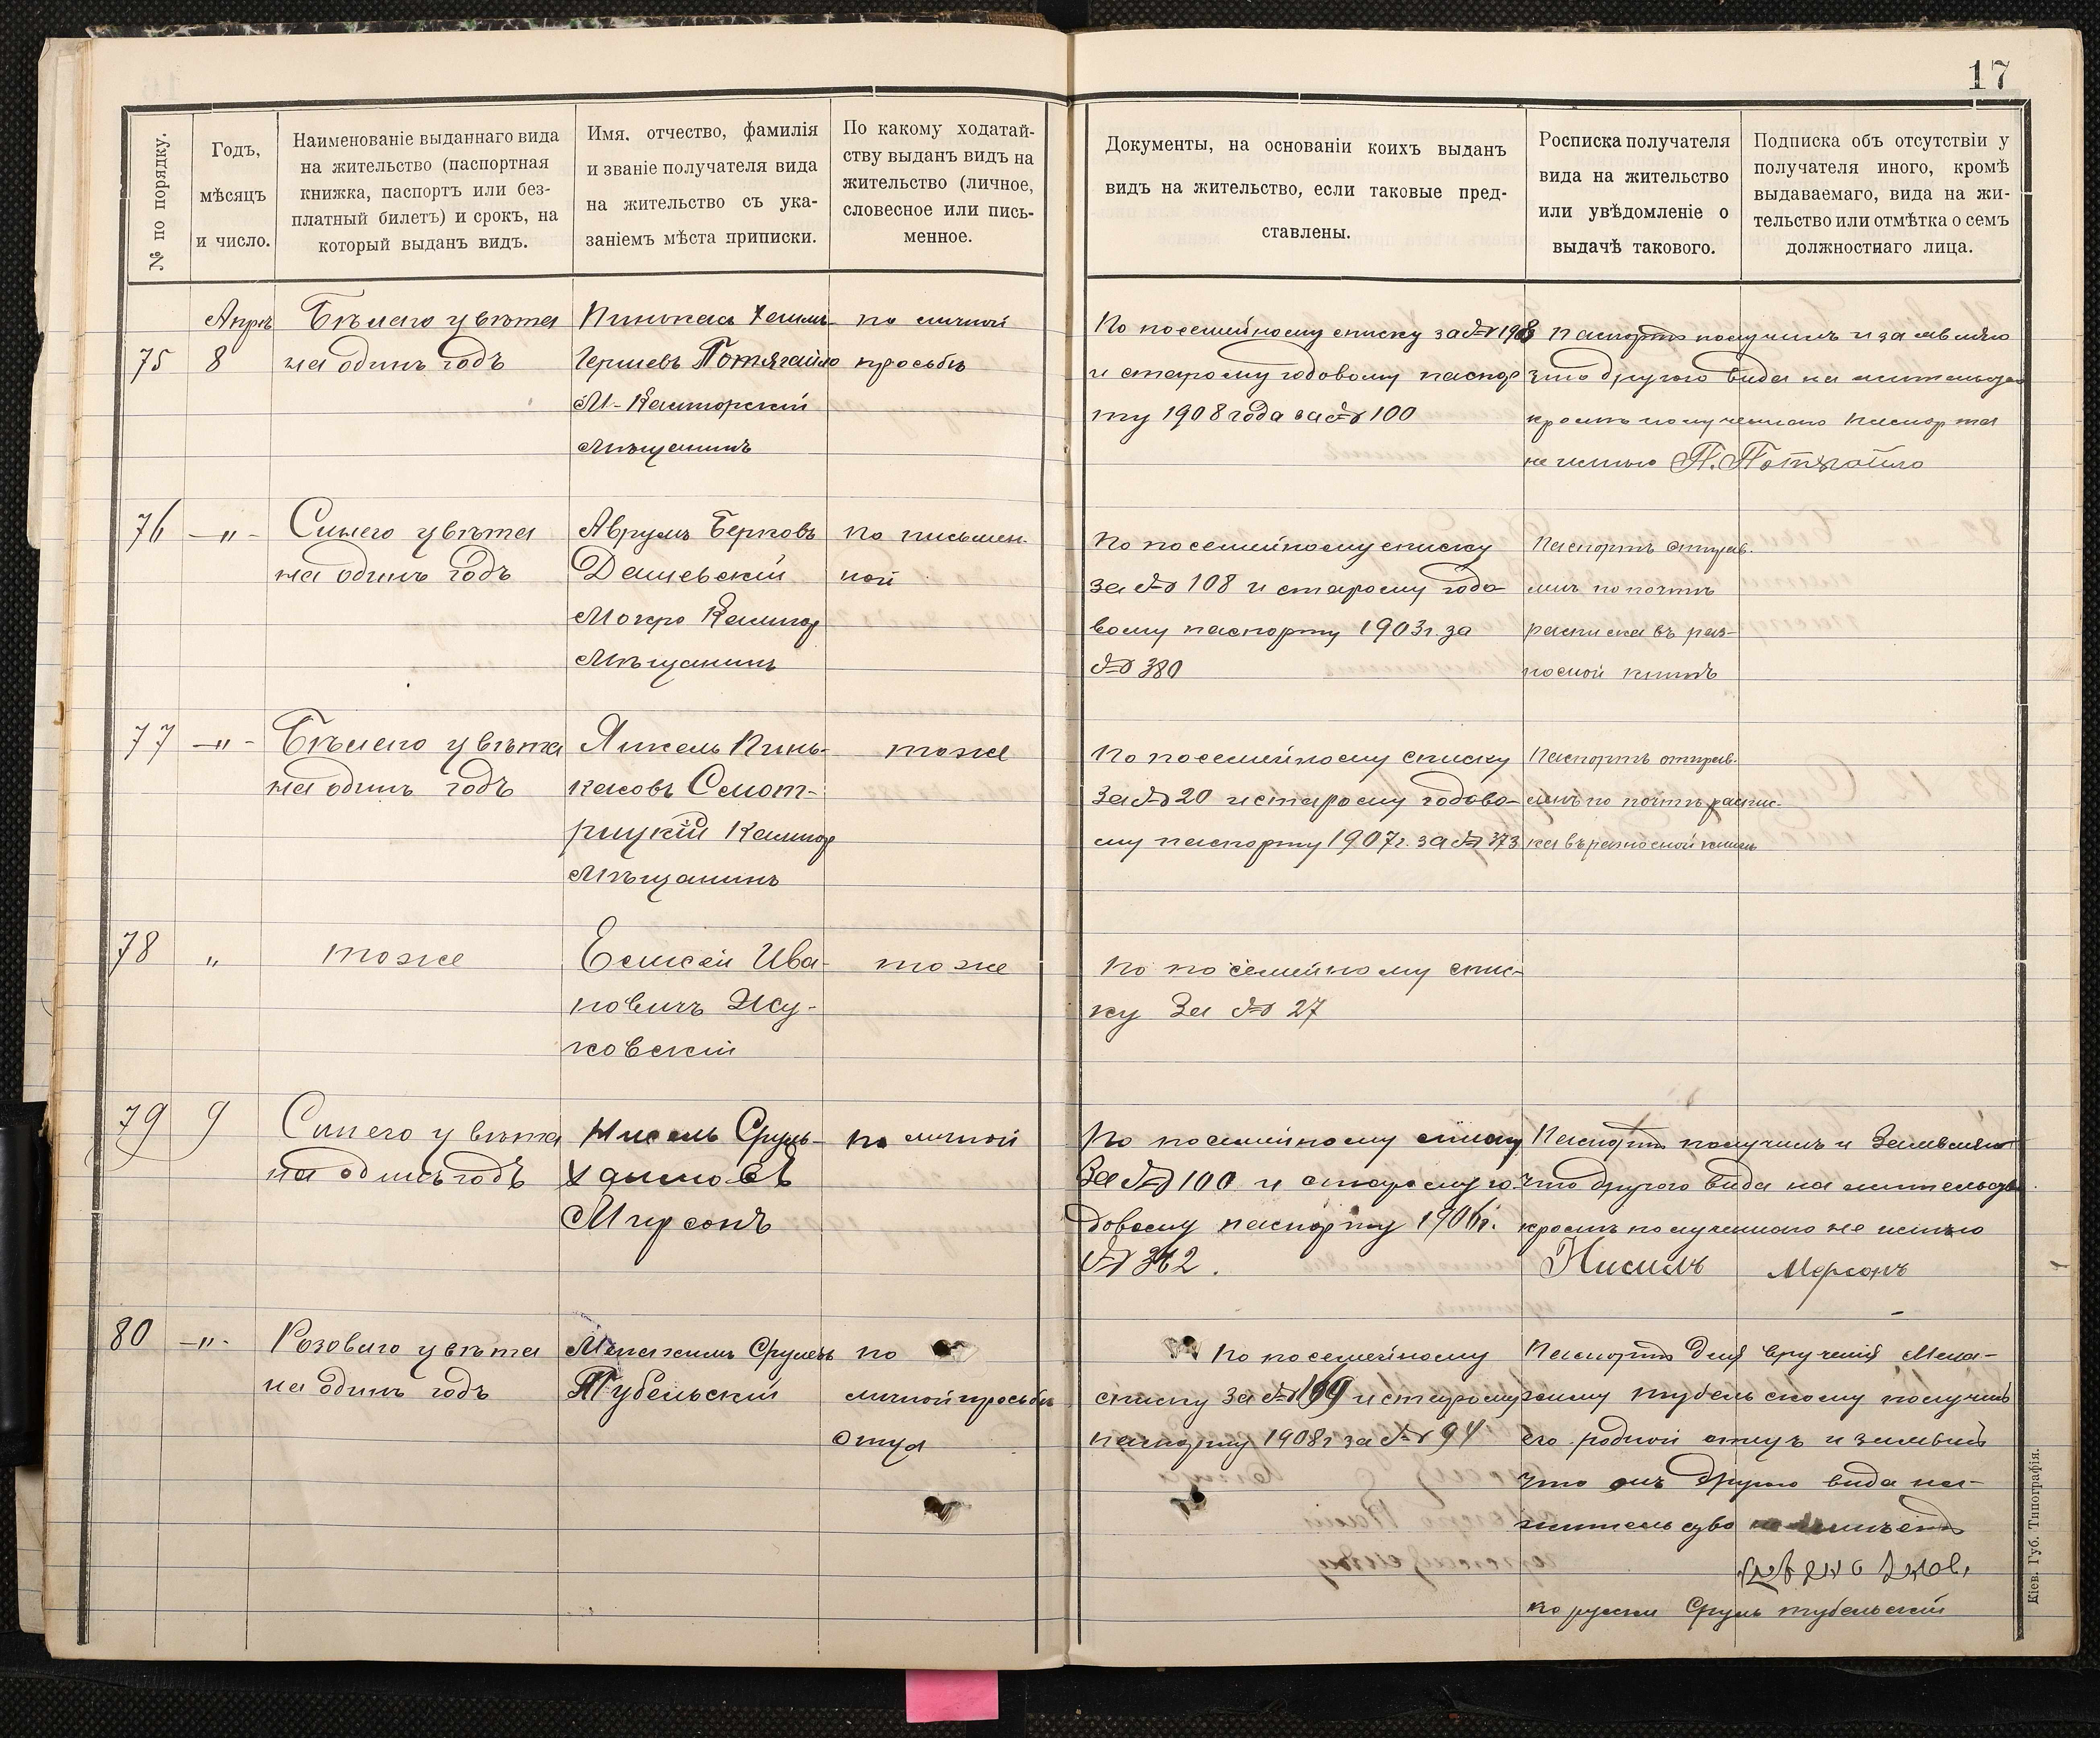 17
№ по порядку.
Годъ,
мѣсяцъ
и число.
Наименованіе выданнаго вида
на жительство (паспортная
книжка, паспортъ или без-
платный билетъ) и срокъ, на
который выданъ видъ.
Имя, отчество, фамилія
и званіе получателя вида
на жительство съ ука-
заніемъ мѣста приписки.
По какому ходатай-
ству выданъ видъ на
жительство (личное,
словесное или пись-
менное.
Документы, на основаніи коихъ выданъ
видъ на жительство, если таковые пред-
ставлены.
Росписка получателя
вида на жительство
или увѣдомленіе о
выдачѣ такового.
Подписка объ отсутствіи у
получателя иного, кромѣ
выдаваемаго, вида на жи-
тельство или отмѣтка о семъ
должностнаго лица.
75
8
Бѣлаго цвѣта
на одинъ годъ
Пинькась
Гершевъ Потягайло
М-Калигорскій
Мѣщанинъ
по личной
просьбѣ
По посемейному списку за №
и старому годовому паспор
ту 1908 года за № 100
Паспортъ получилъ и заявляю
что другого вида на жительство
кромѣ полученнаго паспорта
не имѣю П. Потягайло
76
-"-
Синего цвѣта
на одинъ годъ
Аврумъ Берковъ
Дашевскій
Мокро Калигор
Мѣщанинъ
по письмен-
ной
По посемейному списку
за № 108 и старому годо
вому паспорту 1903г. за
№ 380
Паспортъ отправ-
линъ по почтѣ
расписка въ раз-
носной книгѣ
77
-"-
Бѣлаго цвѣта
на одинъ годъ
Янкель Пинь-
касовъ Смот-
рицкій Калигор
Мѣщанинъ
тоже
По посемейному списку
За № 20 и старому годово-
му паспорту 1907г. за № 373
Паспортъ отправ-
линъ по почтѣ распис-
ка въ разносной книгѣ
78
"
тоже
Елисей Ива-
новичъ Жу-
ковскій
тоже
По посемейному спис-
ку За № 27
79
9
Синего цвѣта
на одинъ годъ
Нисель Сруль-
Хаимовъ
Мирсонъ
по личной
По посемейному списку
За № 100 и старому го-
довому паспорту 1906г.
№ 362.
Паспортъ получилъ и Заявляю
что другого вида на жительство
кромѣ полученнаго не имѣю
Нисилъ Мерсонъ
80
-"-
Розоваго цвѣта
на одинъ годъ
Менахимъ Срулевъ
Тубельскій
по
личной просьбѣ
отца
По посемейному
списку за № и старому
паспорту 1908г за № 94
Паспортъ для врученія Мена-
химу тубельскому получилъ
его родной отецъ и заявилъ
что онъ другого вида на-
жительство не имѣетъ
по русски Сруль тубельскій
Кіев. Губ. Типографія.